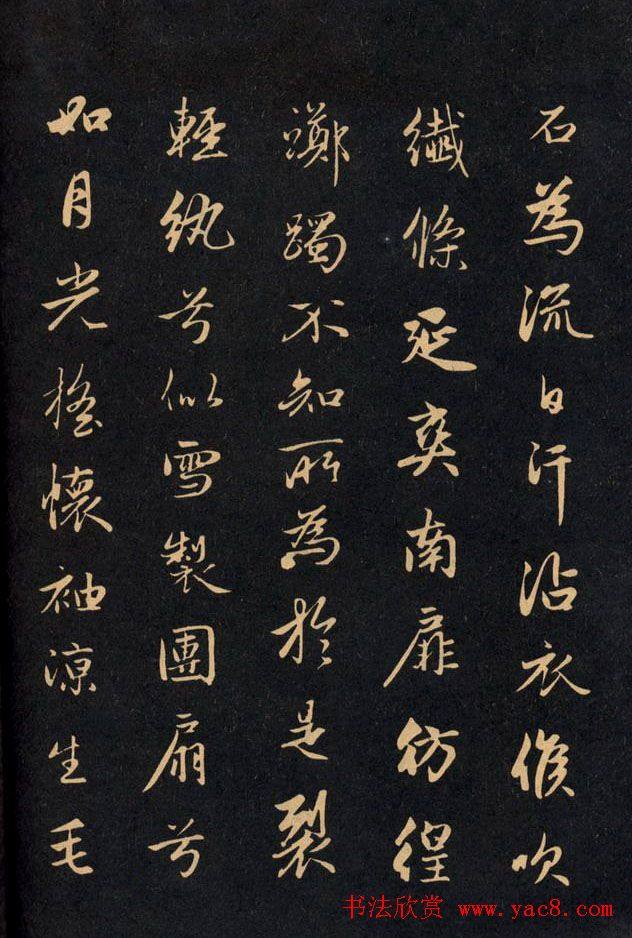 石為流日汗沾衣候吹
纎條延爽南扉彷徨
躑躅不知所為於是裂
輕紈兮似雪製團扇兮
如月光搖懷袖涼生毛
书法欣赏 www.yac8.com